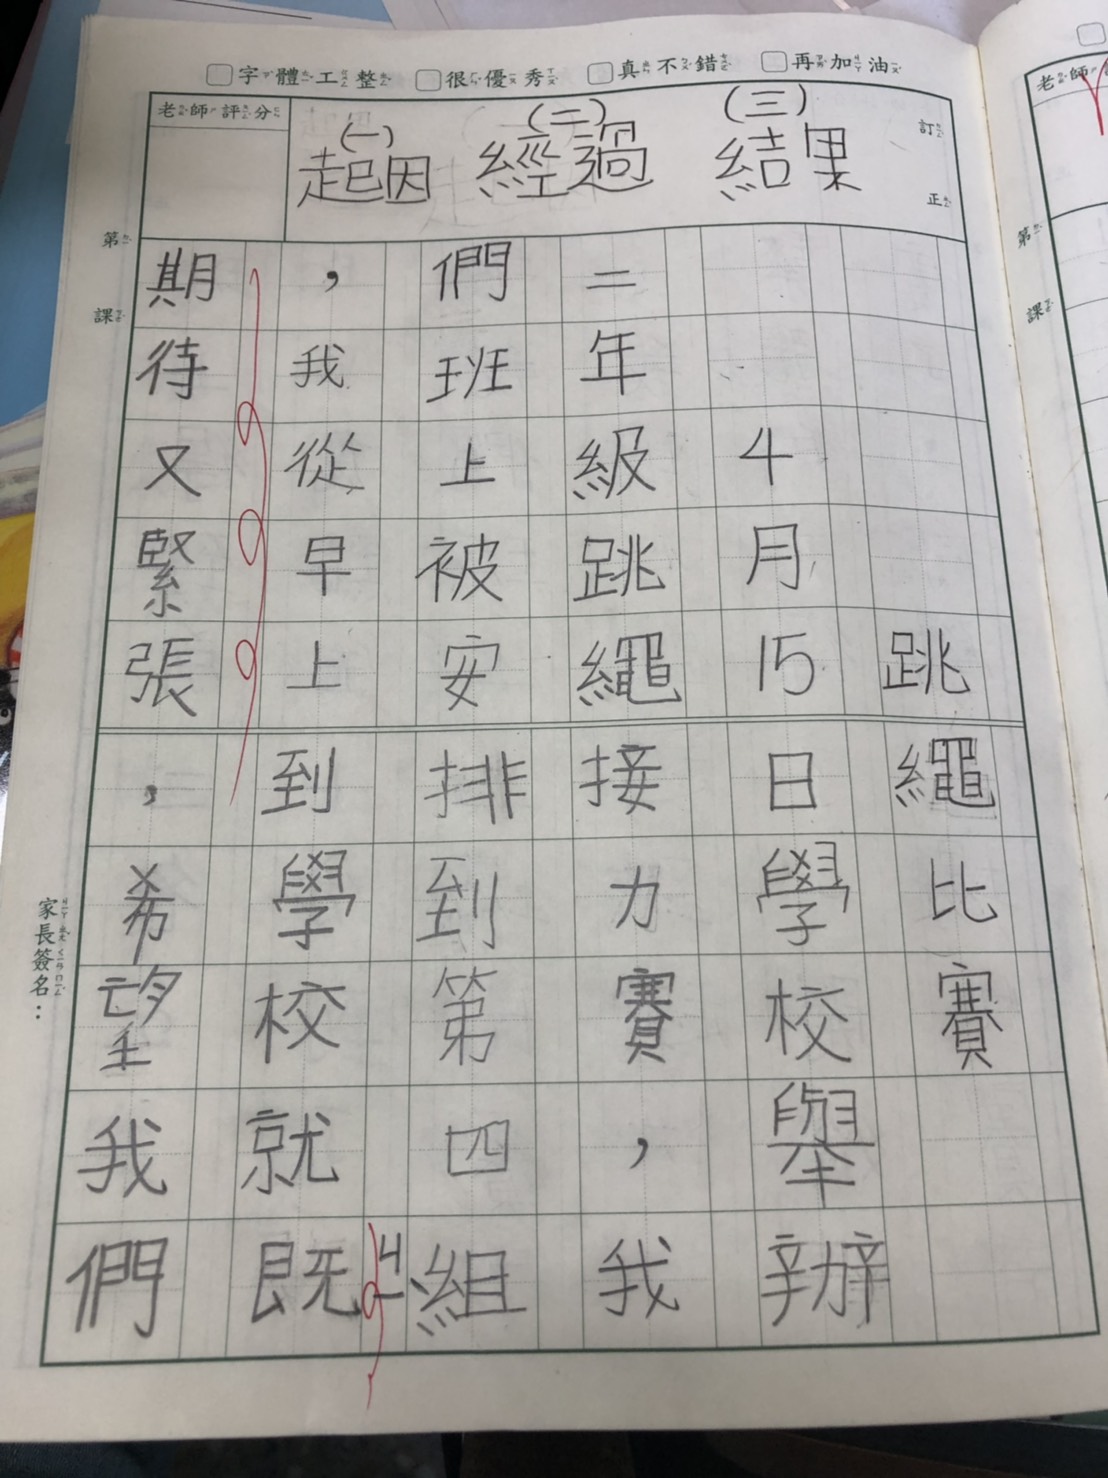 字體工整 很優秀 真不錯 再加油
老師評分
訂正
(一) (二) (三)
起因 經過 結果
第 課
跳繩比賽
4月15日學校舉辦
二年級跳繩接力賽，我
們班上被安排到第四組
，我從早上到學校就既
ㄐㄧˋ
期待又緊張，希望我們
家長簽名：
老師
第 課